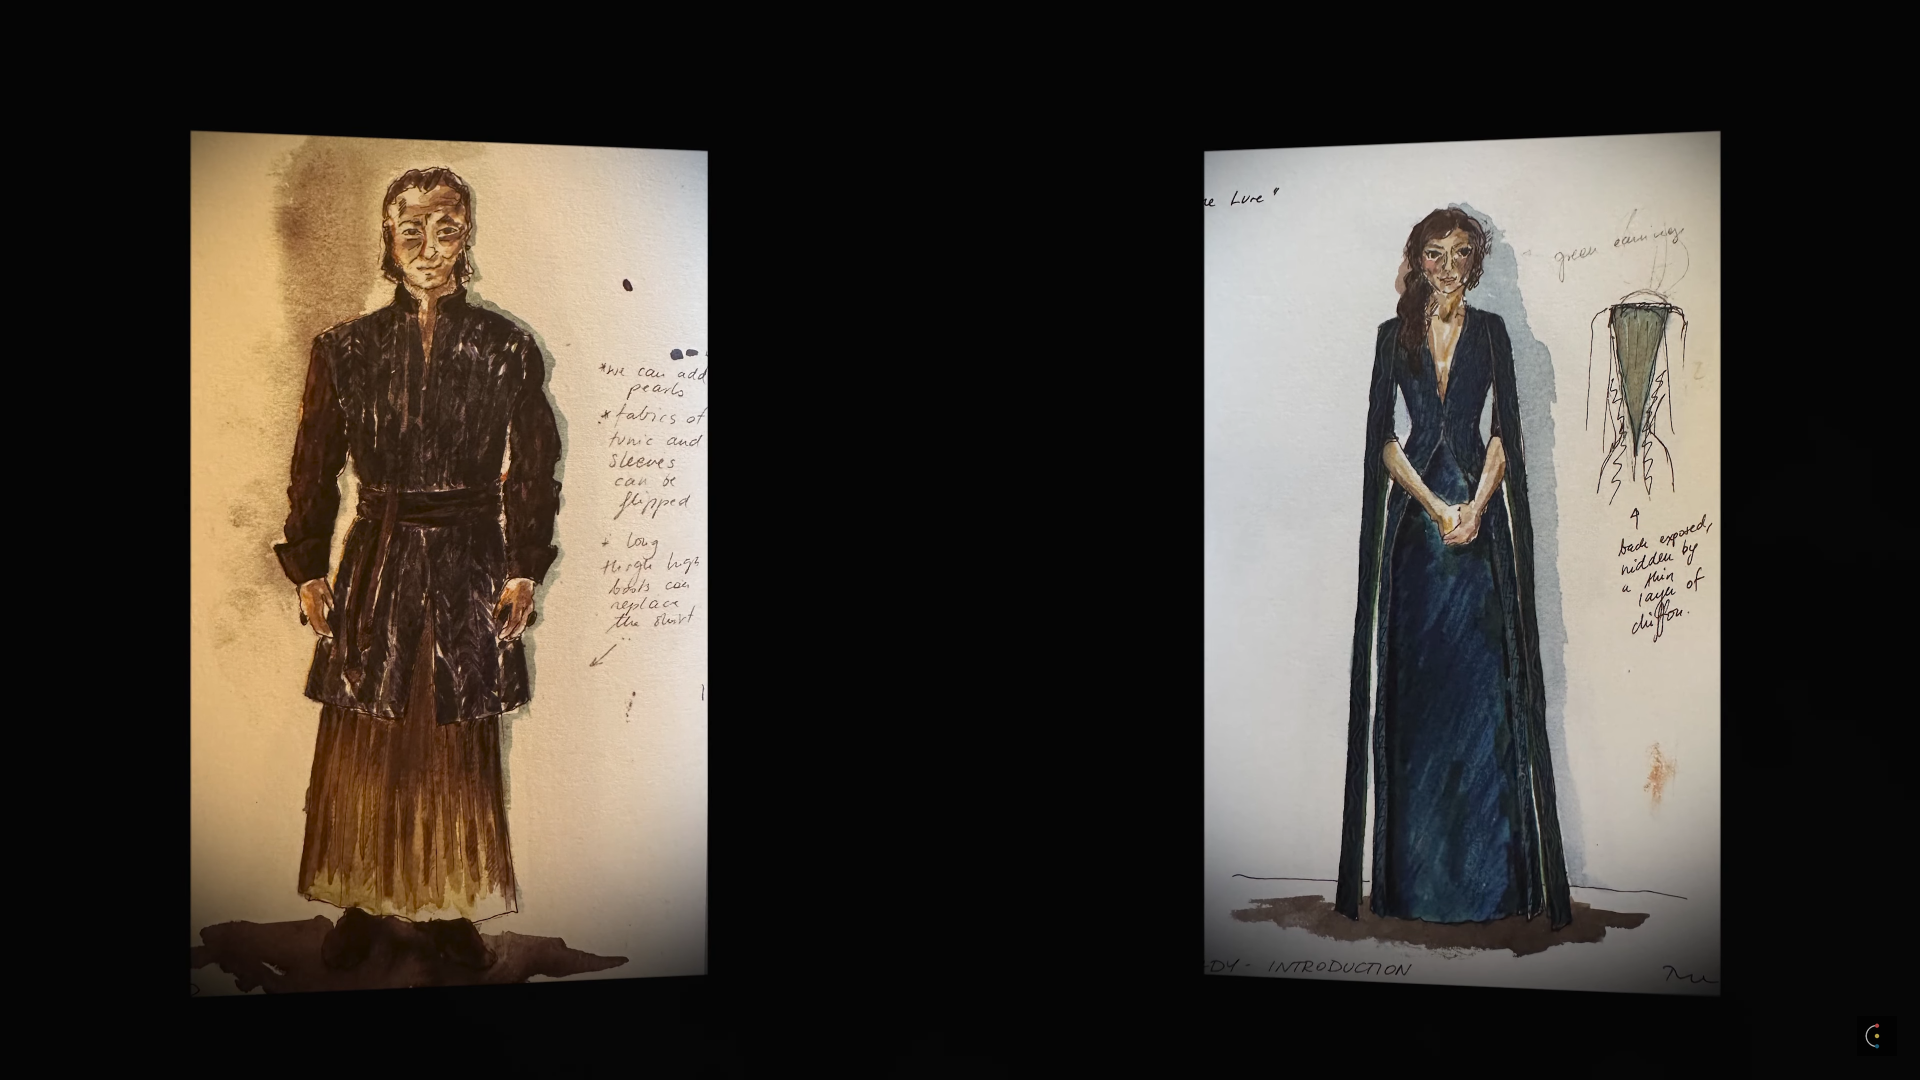 *we can add
pearls
* fabrics of
tunic and
sleeves
can be
flipped
* long
thigh high
boots can
replace
the skirt
Lure"
green earrings
back exposed,
hidden by
a thin
layer of
chiffon.
DY - INTRODUCTION